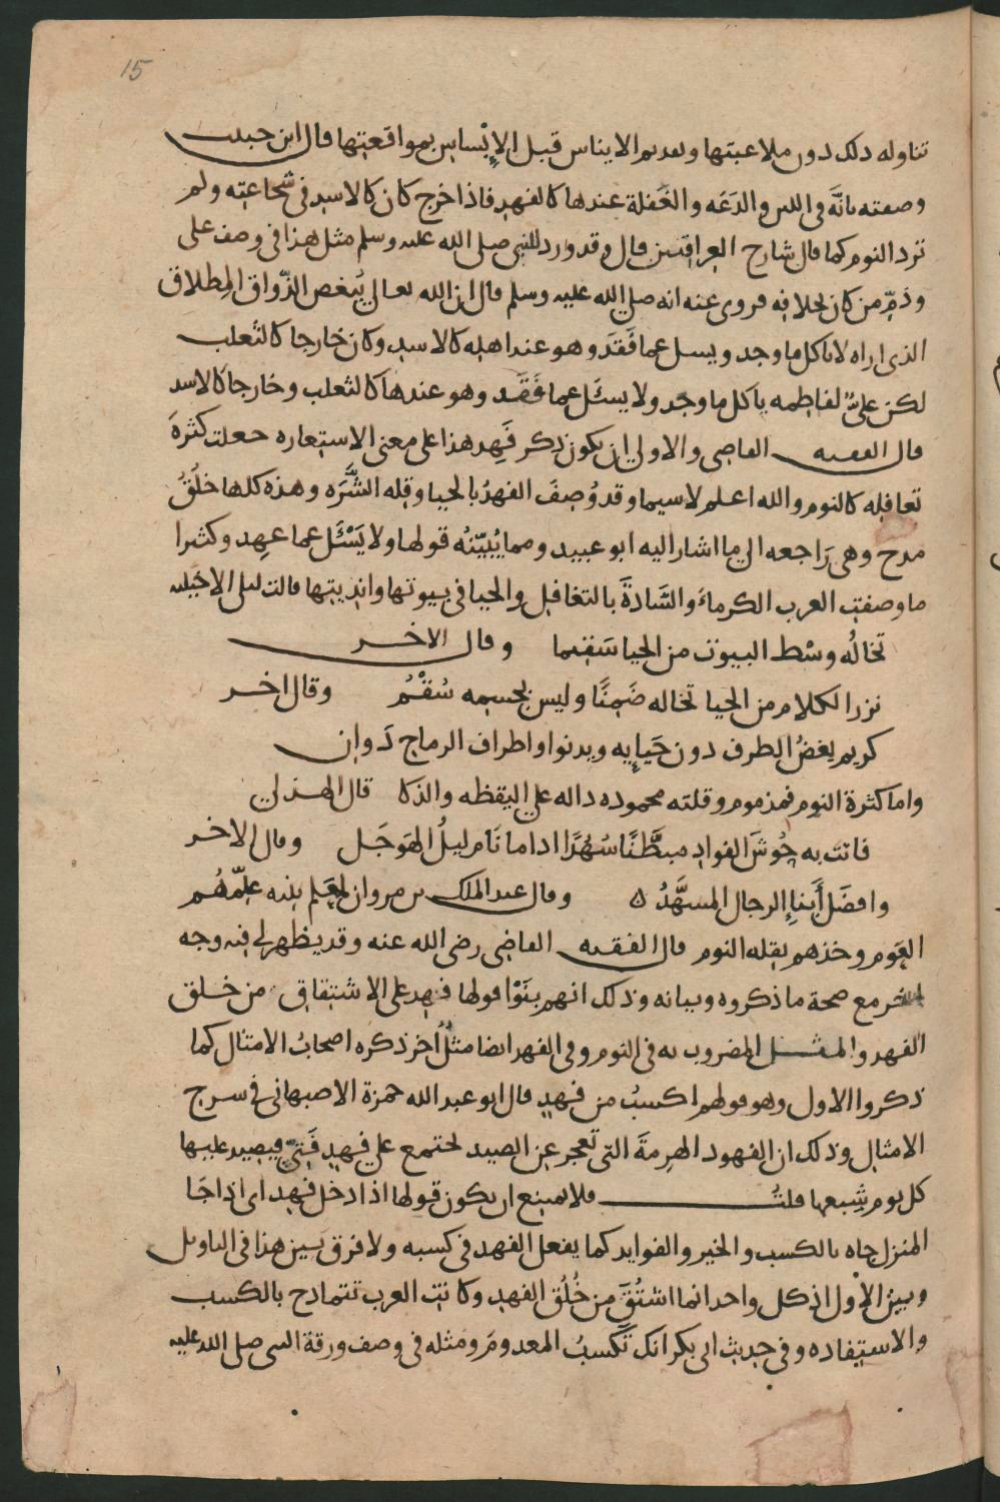 15
تناوله ذلك دون ملاعبتها وتقديم الايناس قبل الإبْساس بمواقعتها قال ابن حبيب
وصفته بانَّه في اللين والدَعَه والغَفلة عندها كالفهد فاذا خرج كان كالاسد في شجاعته ولم
ترد النوم كما قال شارح العراقيين قال وقد ورد للنبي صلى الله عليه وسلم مثل هذا في وصف علي
وذمّ من كان بخلافه فروى عنه انه صلى الله عليه وسلم قال ان الله تعالى يُبغض الذّواق المِطلاق
الذي اراه لا ياكل ما وجد ويسل عما فَقَدَ وهو عند اهله كالاسد وكان خارجا كالثعلب
لكن عليٌّ لفاطمه ياكل ما وجَد ولا يسئَل عما فَقَد وهو عندها كالثعلب وخارجا كالاسد
قال الفقيه القاضي والاولى ان يكون ذكر فَهِد هذا على معنى الاستعاره جعلت كثرَة
تغافله كالنوم والله اعلم لاسيما وقد وُصِفَ الفهدُ بالحيا وقله الشَّرَه وهذه كلها خلُقُ
مدح وهي رَاجعه الى ما اشار اليه ابو عبيد ومما يُبيّنُه قولها ولا يَسْئَل عما عهِد وكثيرا
ما وصفت العرب الكرماءَ والسَّادةَ بالتغافل والحيا في بيوتها وانديتها قالت ليلى الاخيليه
تخالُه وسْط البيوت من الحيا سَقيما وقال الاخر
نزر الكلام من الحيا تخاله ضَمِنًا وليس بجسمه سُقْمُ وقال اخر
كريم يغضُ الطرف دون حَيايِه ويدنوا واطراف الرماح دَوانِ
واما كثرة النوم فمذموم وقلته محموده داله على اليقظه والذكا قال الهذلي
فاتت به حُوشَ الفواد مبطَّنًا سُهُدًا اذا ما نَام ليلُ الهَوجَل وقال الاخر
وافضَل أبناءِ الرجال المسهَّدُ ه وقال عبد الملك بن مروان لمعلم بنيه علّمْهُم
العَوم وخذهم بقله النوم قال الفقيه القاضي رضى الله عنه وقد يظهر لي فيه وجه
اخر مع صحة ما ذكروه وبيانه وذلك انهم بنَوْا قولها فهد على الاشتقاق من خلق
الفهد والمثل المضروب به في النوم وفي الفهد ايضا مثلٌ آخر ذكره اصحابُ الامثال كما
ذكروا الاول وهو قولهم اكسبُ من فهدٍ قال ابو عبد الله حمزة الاصبهاني في شرح
الامثال وذلك ان الفهود الهرِمةَ التي تعجز عن الصيد تجتمع على فهدٍ فَتِيّ فيصيد عليها
كل يوم شِبعها قلتُ فلا يمتنع ان يكون قولها اذا دخل فهد اى اذا جَا
المنزل جاه بالكسب والخير والفوايد كما يفعل الفهد في كسبه ولا فرق بَين هذا في التاويل
وبين الاول اذ كل واحد انما اشتُقَّ من خُلُق الفهد وكانت العرب تتمادح بالكسب
والاستفاده وفي حديث ابى بكر انك تَكسبُ المعدومَ ومثله في وصف ورقة النبي صلى الله عليه